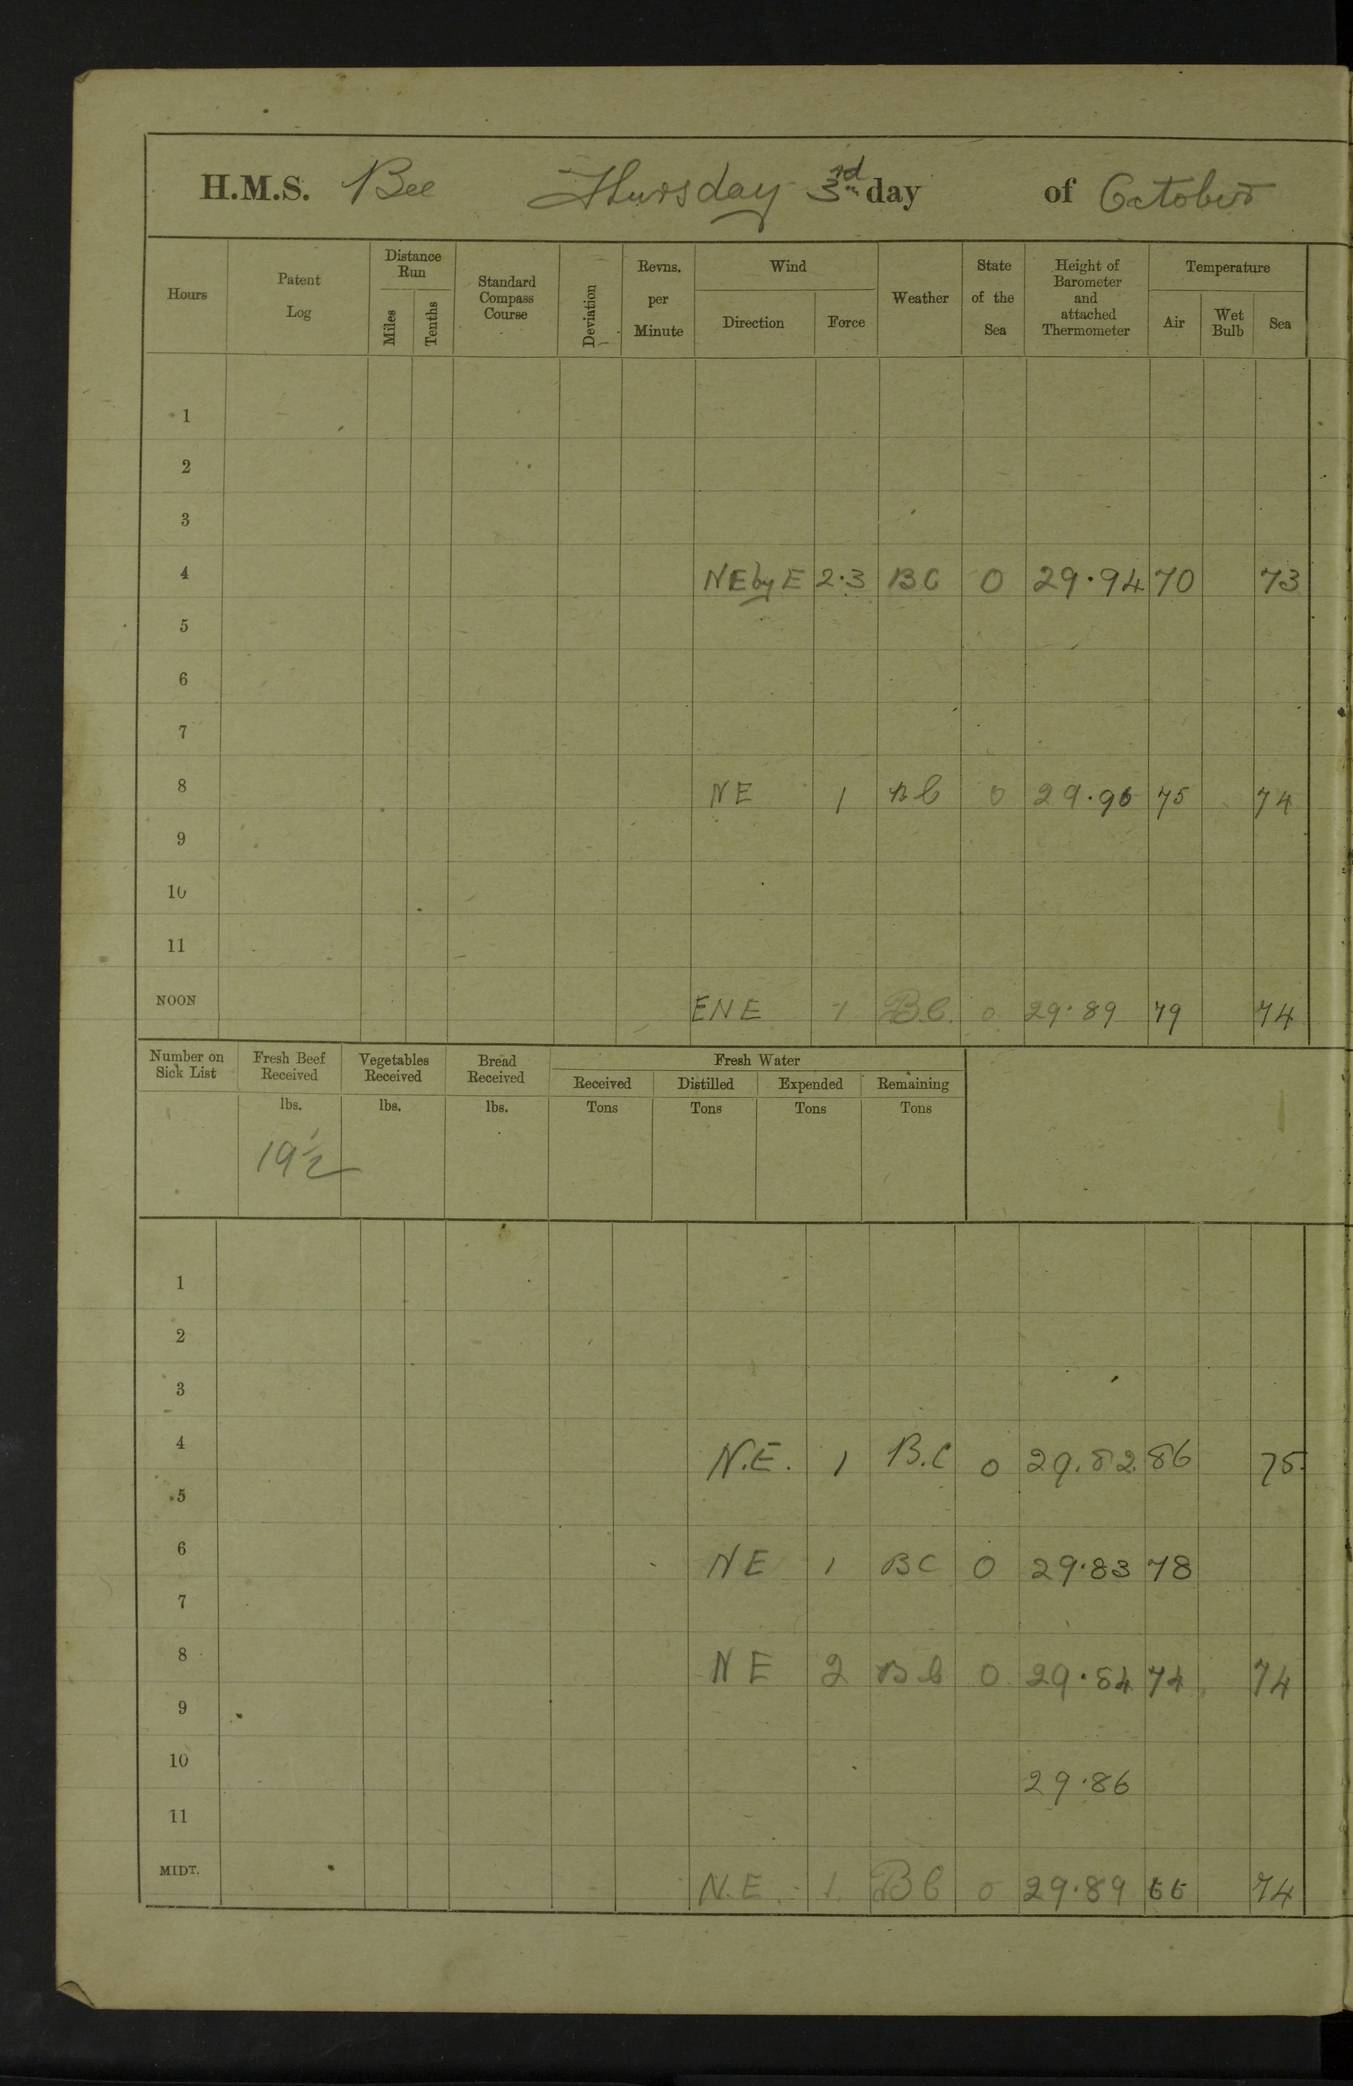 H.M.S. Bee Thursday 3rd day of October
Hours Patent Log Distance Run Miles Tenths Standard Compass Course Deviation Revns. per Minute Wind Direction Force Weather State of the Sea Height of Barometer and attached Thermometer Temperature Air Wet Bulb Sea
1
2
3
4 NE by E 2·3 BC 0 29·94 70 73
5
6
7
8 NE 1 BC 0 29·96 75 74
9
10
11
NOON ENE 1 B.C. 0 29·89 79 74
Number on Sick List Fresh Beef Received Vegetables Received Bread Received Fresh Water
Received Distilled Expended Remaining
lbs. lbs. lbs. Tons Tons Tons Tons
19½
1
2
3
4 N.E. 1 B.C 0 29.82 86 75
5
6 NE 1 BC 0 29·83 78
7
8 NE 2 BC 0 29·84 74 74
9
10 29·86
11
MIDT. N.E. 1 BC 0 29·89 66 74